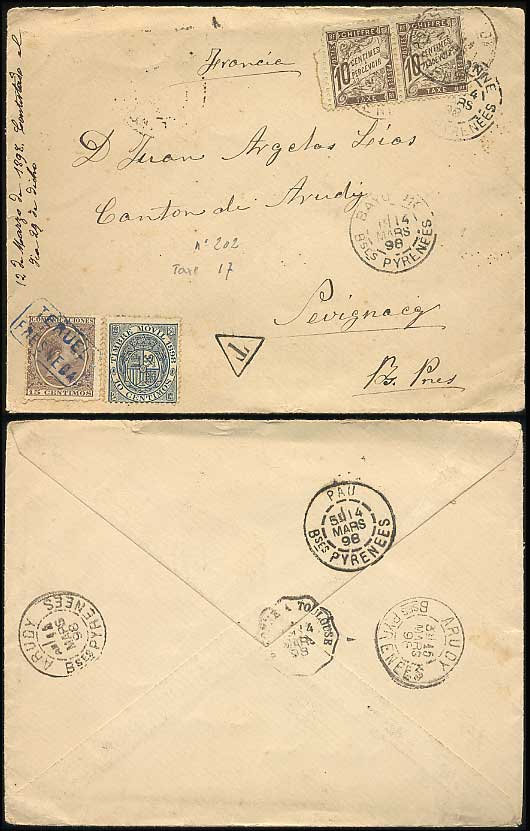 Francia
D Juan Argelos Lóas
Canton de Arudy
nº 202
Taxe 17
Sevignacq
Bs. Pnes
12 de Marzo de 1898. Contestado el
dia 29 de dicho
CHIFFRE
10 CENTIMES A PERCEVOIR
TAXE
CHIFFRE
10 CENTIMES A PERCEVOIR
TAXE
14
MARS
98
PYRENEES
14
MARS
98
BSES PYRENEES
T
TERUEL
COMUNICACIONES
15 CENTIMOS
TIMBRE MOVIL 1898
10 CENTIMOS
PAU
5E 14
MARS
98
BSES PYRENEES
ARUDY
MARS
BSES PYRENEES
A TOULOUSE
ARUDY
15
MARS
98
BSES PYRENEES